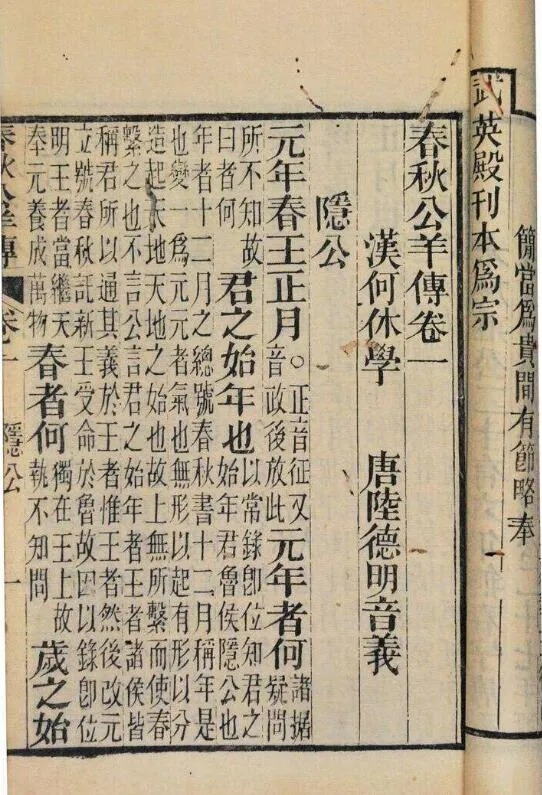 簡當爲貴間有節略奉
武英殿刊本爲宗
春秋公羊傳卷一
漢何休學　唐陸德明音義
隱公
元年春王正月。正音征又音政後放此元年者何諸據疑問
所不知故曰者何君之始年也以常錄卽位知君之始年君魯侯隱公也
年者十二月之總號春秋書十二月稱年是也變一爲元元者氣也無形以起有形以分
造起天地天地之始也故上無所繫而使春繫之也不言公言君之始年者王者諸侯皆
稱君所以通其義於王者惟王者然後改元立號春秋託新王受命於魯故因以錄卽位
明王者當繼天奉元養成萬物春者何獨在王上故執不知問歲之始
春秋公羊傳　卷一　隱公　一